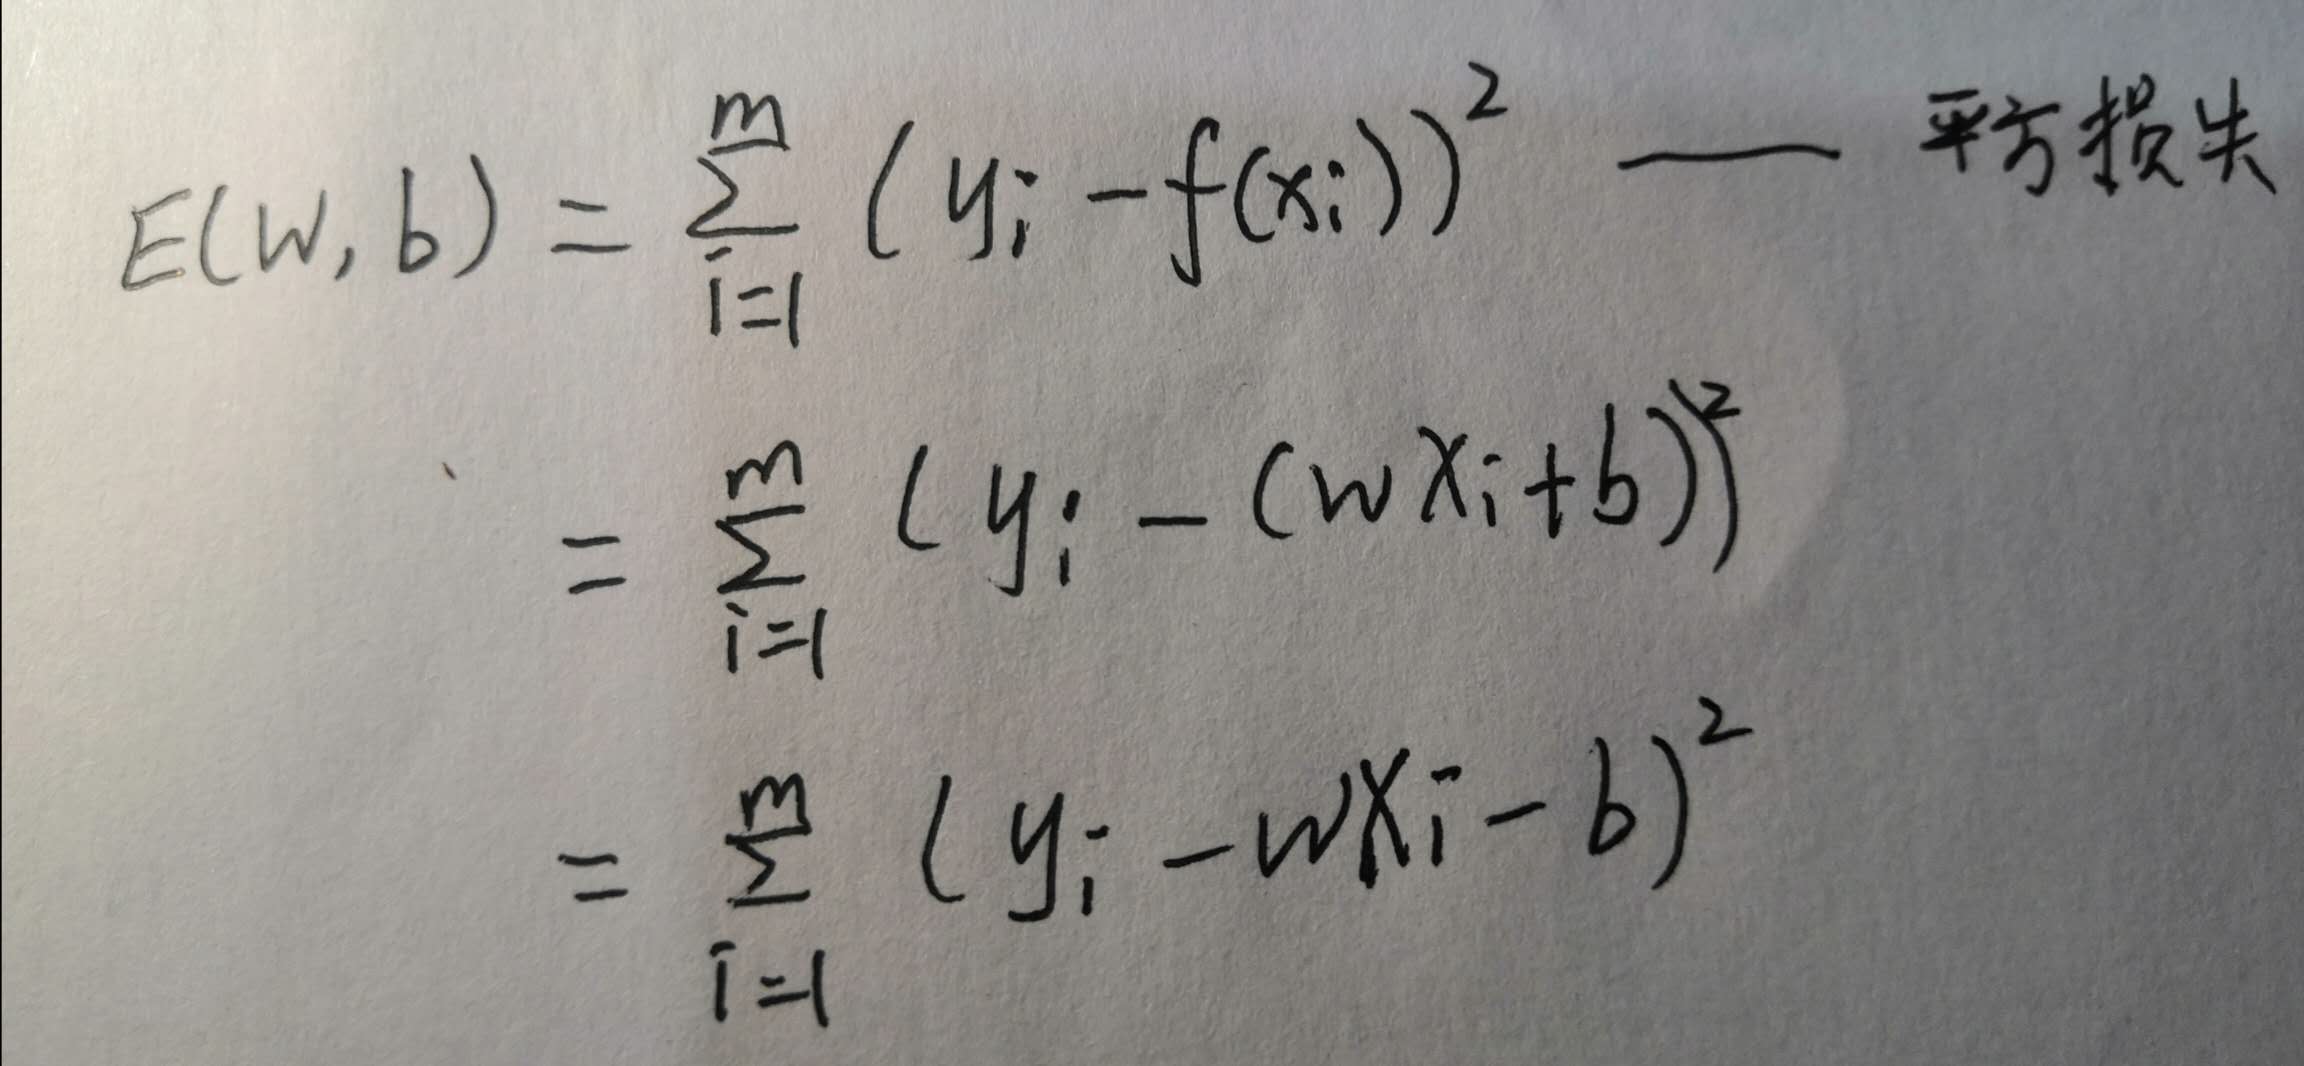 E(W, b) = \sum_{i=1}^{m} (y_i - f(x_i))^2 —— 平方损失
= \sum_{i=1}^{m} (y_i - (wx_i+b))^2
= \sum_{i=1}^{m} (y_i - wx_i - b)^2